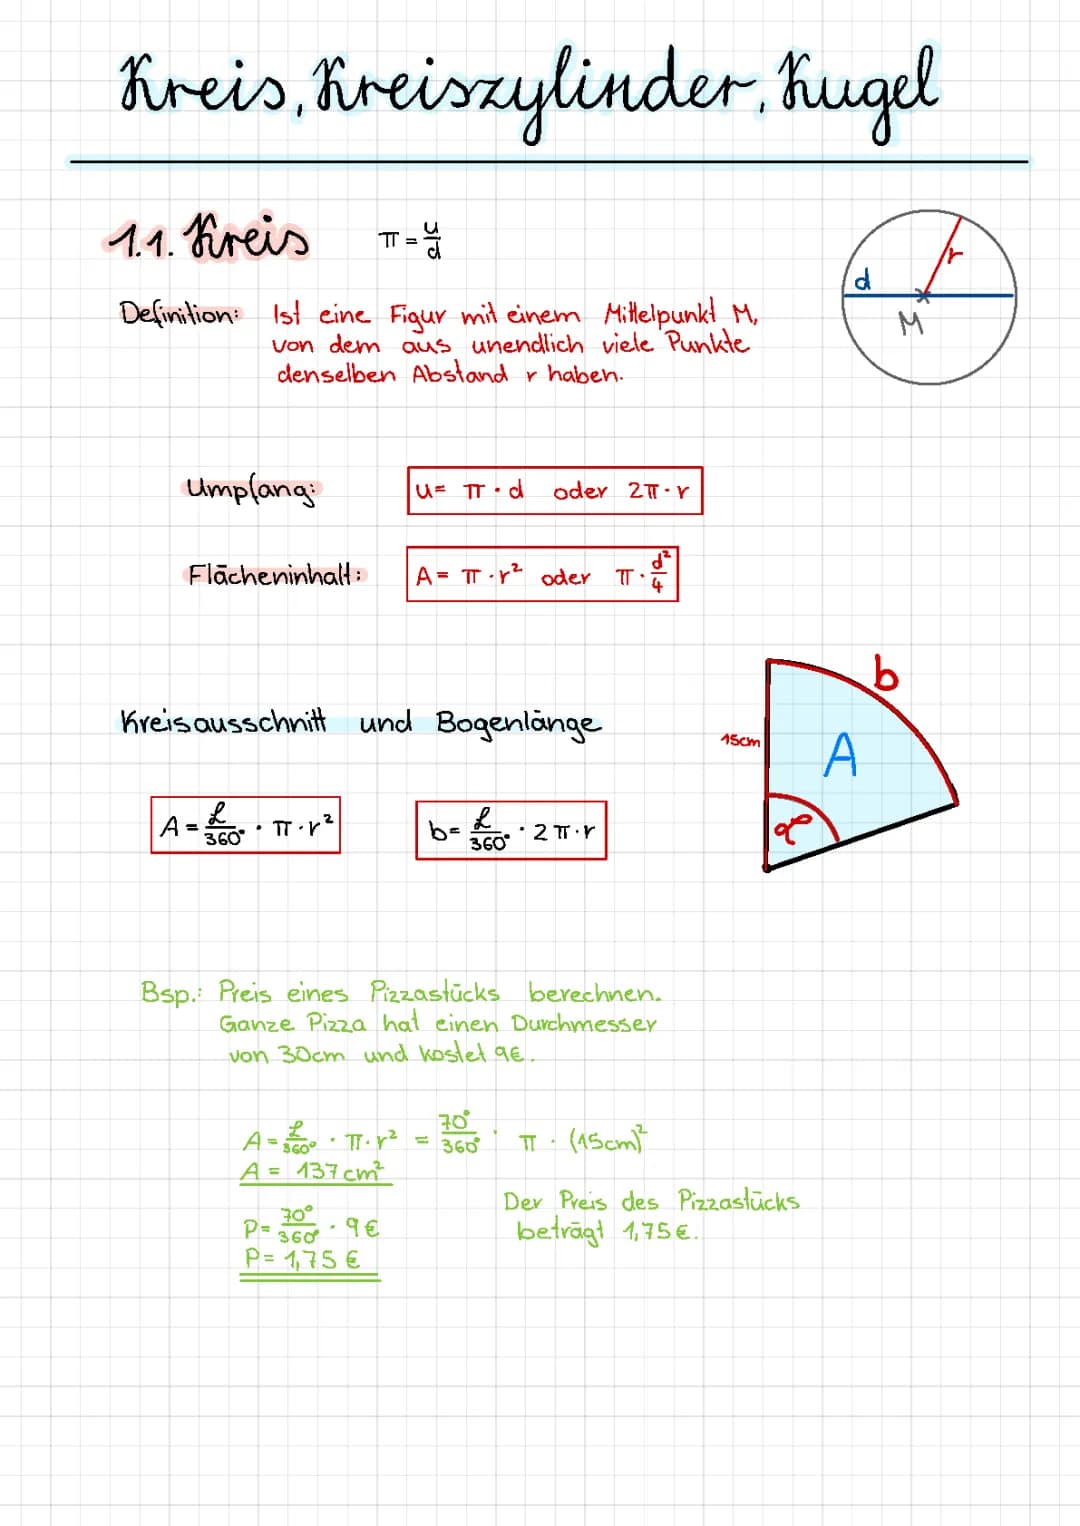 Kreis, Kreiszylinder, Kugel
1.1. Kreis π = u/d
Definition: Ist eine Figur mit einem Mittelpunkt M,
von dem aus unendlich viele Punkte
denselben Abstand r haben.
d
r
M
Umpfang: u = π · d oder 2π · r
Flächeninhalt: A = π · r² oder π · d²/4
Kreisausschnitt und Bogenlänge
b
15cm
A
α
A = α/360° · π · r²
b = α/360° · 2π · r
Bsp.: Preis eines Pizzastücks berechnen.
Ganze Pizza hat einen Durchmesser
von 30cm und kostet 9€.
A = α/360° · π · r² = 70°/360° · π · (15cm)²
A = 137cm²
P = 70°/360° · 9€
P = 1,75€
Der Preis des Pizzastücks
beträgt 1,75€.